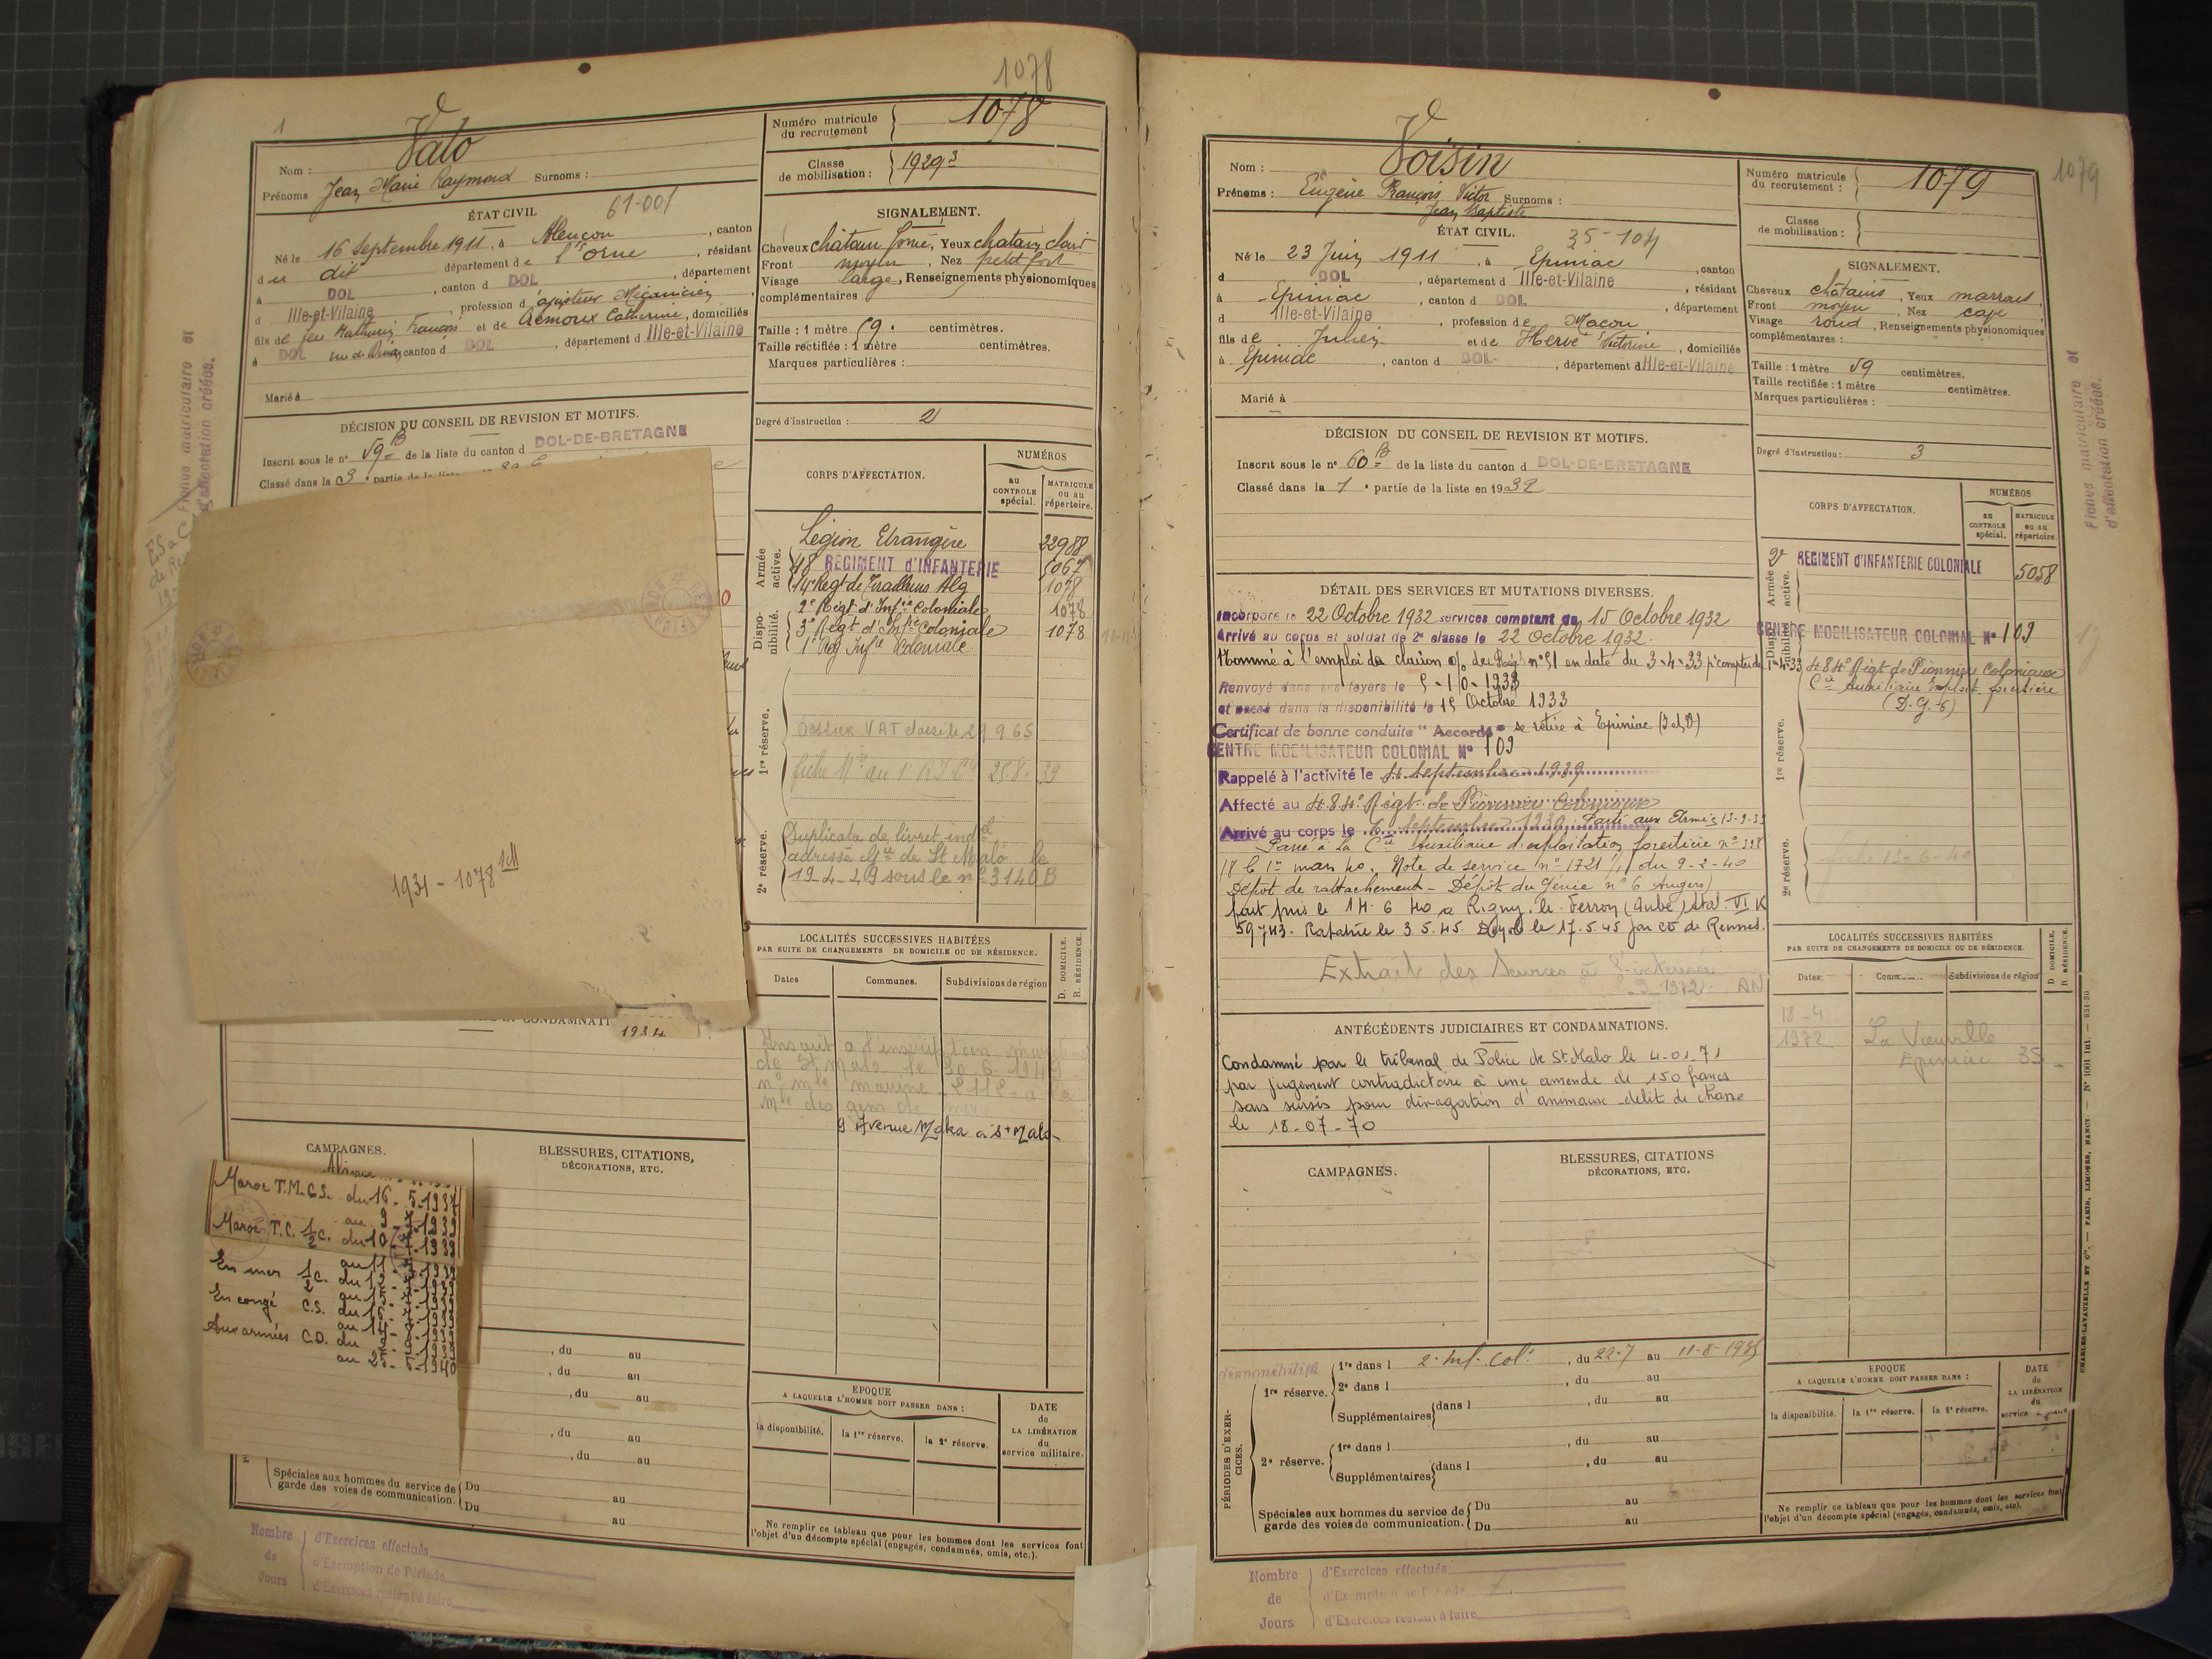 1078
Vato
Nom :
Prénoms Jean Marie Raymond Surnoms :
ÉTAT CIVIL 61-001
Né le 16 Septembre 1911, à Alençon , canton
du dit département de l'Orne , résidant
à DOL , canton d DOL , département
d Ille-et-Vilaine , profession d'ajusteur Mécanicien
fils de feu Mathurin François et de Catherine , domiciliés
à DOL canton d DOL , département d Ille-et-Vilaine
Marié à
DÉCISION DU CONSEIL DE REVISION ET MOTIFS.
Inscrit sous le nº 59 B de la liste du canton d DOL-DE-BRETAGNE
Classé dans la 3e partie de la liste
1931 - 1078
1934
CAMPAGNES.
Maroc T.M.C.S. du 16. 5.1937
au 9. 7.1939
Maroc T.C. 1/2 c. du 10. 7.1939
au 11
En mer 1/2 c. du 12. 7.1939
En congé C.S. du 16.
Aux armées C.D. du
au 25. 5.1940
BLESSURES, CITATIONS,
DÉCORATIONS, ETC.
, du au
, du au
, du au
, du au
, du au
Spéciales aux hommes du service de garde des voies de communication. Du au
Du au
Nombre de Jours
d'Exercices effectués
d'Exemption de Période
d'Exercices restant à faire
Numéro matricule du recrutement 1078
Classe de mobilisation : 1929 3
SIGNALEMENT.
Cheveux châtain foncé, Yeux chatain clair
Front moyen , Nez petit fort
Visage large, Renseignements physionomiques
complémentaires
Taille : 1 mètre 59 centimètres.
Taille rectifiée : 1 mètre centimètres.
Marques particulières :
Degré d'instruction : 2
CORPS D'AFFECTATION.
NUMÉROS
au CONTROLE spécial.
MATRICULE ou au répertoire.
Armée active.
Légion Etrangère 22988
48 REGIMENT d'INFANTERIE 5067
14e Regt de Tirailleurs Alg 1078
Disponibilité.
2e Régt d'Infie Coloniale 1078
3e Régt d'Infie Coloniale 1078
1er Reg Infie Coloniale
1re réserve.
Dossier VAT classé le 29 9 65
fiche Mle au 1 R.I.C. 25.8.39
2e réserve.
Duplicata de livret indel
adressé Gie de St Malo le
19-4-29 sous le nº 3140 B
LOCALITÉS SUCCESSIVES HABITÉES
PAR SUITE DE CHANGEMENTS DE DOMICILE OU DE RÉSIDENCE.
D. DOMICILE.
R. RÉSIDENCE.
Dates Communes. Subdivisions de région
Inscrit à l'inscription maritime
de St Malo le 30.6.1949
nº mle marine 2112
mle des gens de mer
9 Avenue Moka à St Malo
EPOQUE
A LAQUELLE L'HOMME DOIT PASSER DANS :
la disponibilité. la 1re réserve. la 2e réserve.
DATE de LA LIBÉRATION du service militaire.
Ne remplir ce tableau que pour les hommes dont les services font
l'objet d'un décompte spécial (engagés, condamnés, omis, etc.).
Fiches matriculaire et
d'affectation créées.
1079
Nom : Voisin
Prénoms : Eugène François Victor Surnoms :
Jean Baptiste
ÉTAT CIVIL. 35-104
Né le 23 Juin 1911 , à Epiniac , canton
d DOL , département d Ille-et-Vilaine , résidant
à Epiniac , canton d DOL , département
d Ille-et-Vilaine , profession de Maçon
fils de Julien et de Hervé Victorine , domiciliés
à Epiniac , canton d DOL , département d Ille-et-Vilaine
Marié à
DÉCISION DU CONSEIL DE REVISION ET MOTIFS.
Inscrit sous le nº 60 B de la liste du canton d DOL-DE-BRETAGNE
Classé dans la 1e partie de la liste en 1932
DÉTAIL DES SERVICES ET MUTATIONS DIVERSES.
Incorporé le 22 Octobre 1932 services comptant du 15 Octobre 1932
Arrivé au corps et soldat de 2e classe le 22 Octobre 1932
Nommé à l'emploi de clairon o/ du Rég nº 51 en date du 3-4-33 p. compter du 1-4-33
Renvoyé dans ses foyers le 5-10-1933
et passé dans la disponibilité le 15 Octobre 1933
Certificat de bonne conduite "Accordé" se retire à Epiniac (I et V)
CENTRE MOBILISATEUR COLONIAL Nº 109
Rappelé à l'activité le Septembre 1939
Affecté au 484e Régt de Pionniers Coloniaux
Arrivé au corps le 6 Septembre 1939. Parti aux Armées 13-9-39
Passé à la Cie Auxiliaire d'exploitation forestière
le 1er mars 40. Note de service nº 1721 du 9-2-40
Dépôt de rattachement - Dépôt du Génie nº 6 Angers)
fait pris le 14.6.40 à Rigny le Ferron (Aube) Stal. VI K
59743. Rapatrié le 3.5.45 le 17.5.45 par CD de Rennes.
Extrait des Services à l'intéressé
1972. AN
ANTÉCÉDENTS JUDICIAIRES ET CONDAMNATIONS.
Condamné par le tribunal de Police de St Malo le 4-01-71
par jugement contradictoire à une amende de 150 francs
sans sursis pour divagation d'animaux - délit de chasse
le 18-07-70
CAMPAGNES.
BLESSURES, CITATIONS
DÉCORATIONS, ETC.
PÉRIODES D'EXERCICES.
disponibilité
1re réserve. 1re dans l 2e Inf. Colle , du 22-7 au 11-8-1935
2e dans l , du au
Supplémentaires dans l , du au
2e réserve. 1re dans l , du au
Supplémentaires dans l , du au
Spéciales aux hommes du service de garde des voies de communication. Du au
Du au
Nombre de Jours
d'Exercices effectués
d'Exemption de Période
d'Exercices restant à faire
Numéro matricule du recrutement : 1079
Classe de mobilisation :
SIGNALEMENT.
Cheveux châtains , Yeux marrons
Front moyen , Nez cave
Visage rond , Renseignements physionomiques
complémentaires :
Taille : 1 mètre 59 centimètres.
Taille rectifiée : 1 mètre centimètres.
Marques particulières :
Degré d'instruction : 3
CORPS D'AFFECTATION.
NUMÉROS
au CONTROLE spécial.
MATRICULE ou au répertoire.
Armée active.
2e REGIMENT D'INFANTERIE COLONIALE 5058
Disponibilité.
CENTRE MOBILISATEUR COLONIAL Nº 109
484e Régt de Pionniers Coloniaux
Cie Auxiliaire Exploit. forestière
(D.G.6)
1re réserve.
2e réserve.
fiche 13-6-40
LOCALITÉS SUCCESSIVES HABITÉES
PAR SUITE DE CHANGEMENTS DE DOMICILE OU DE RÉSIDENCE.
D DOMICILE.
R RÉSIDENCE.
Dates. Communes Subdivisions de région
18-4
1972 La Vieuville
Epiniac 35
EPOQUE
A LAQUELLE L'HOMME DOIT PASSER DANS :
la disponibilité. la 1re réserve. la 2e réserve.
DATE de LA LIBÉRATION du service
Ne remplir ce tableau que pour les hommes dont les services font
l'objet d'un décompte spécial (engagés, condamnés, omis, etc).
CHARLES-LAVAUZELLE ET Cie. — PARIS, LIMOGES, NANCY — Nº 1001 Int. — 831-30
Fiches matriculaire et
d'affectation créées.
1079